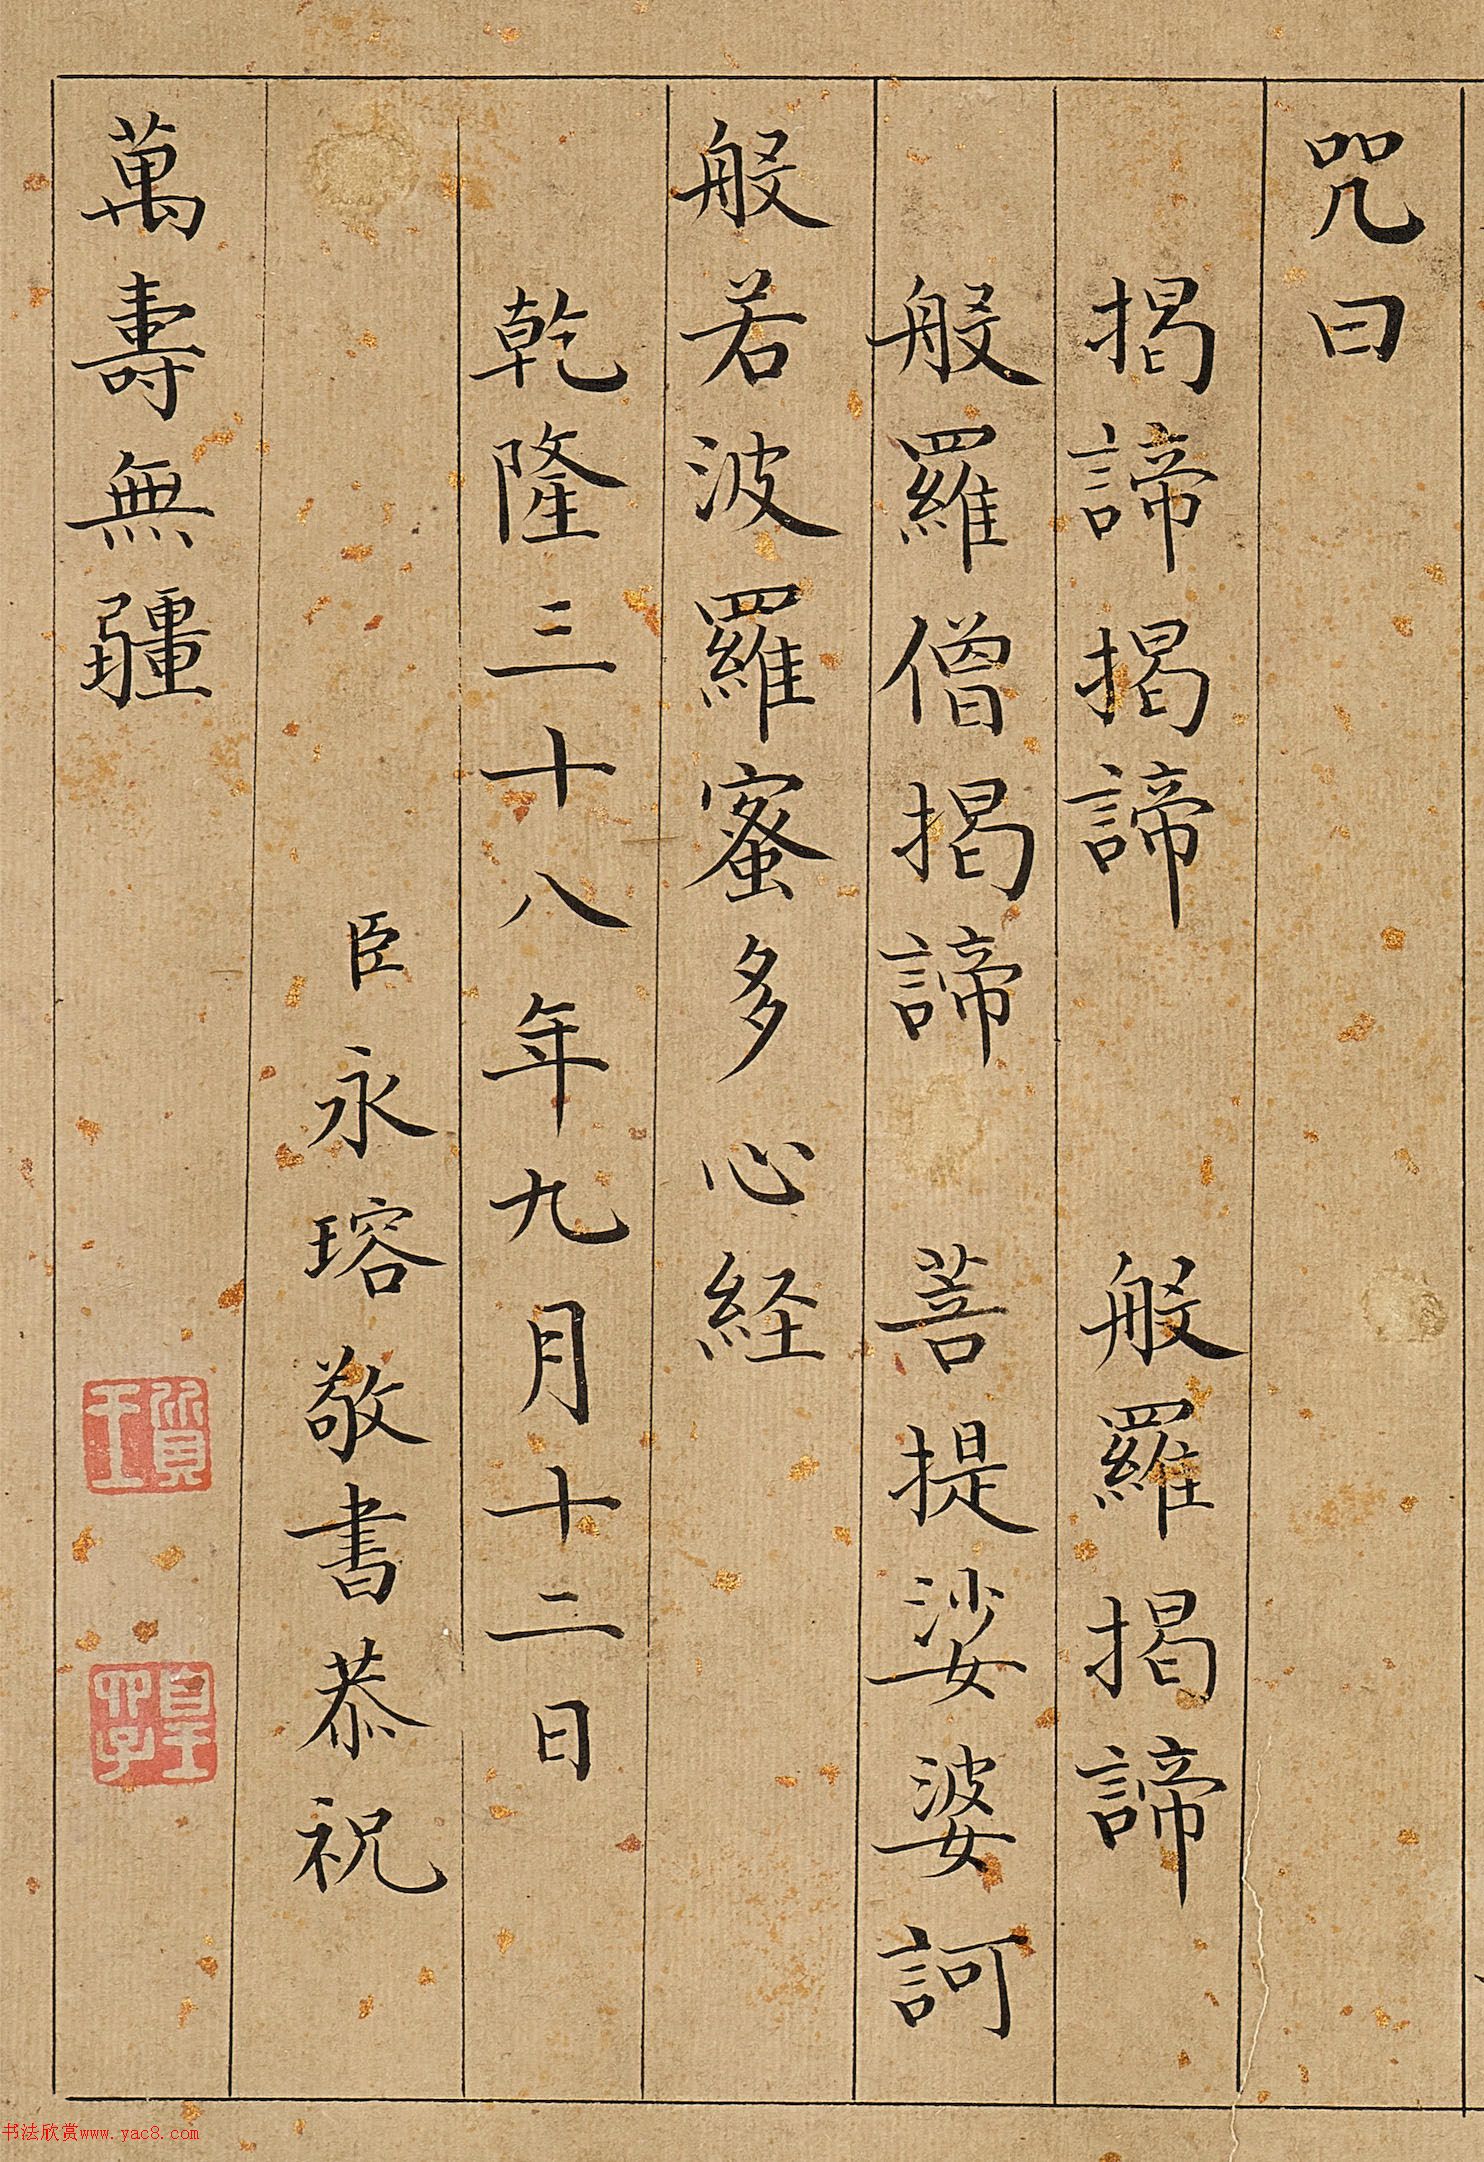 咒曰
揭諦揭諦　般羅揭諦
般羅僧揭諦　菩提娑婆訶
般若波羅蜜多心経
乾隆三十八年九月十二日
臣永瑢敬書恭祝
萬壽無疆
質郡王
皇六子
书法欣赏www.yac8.com